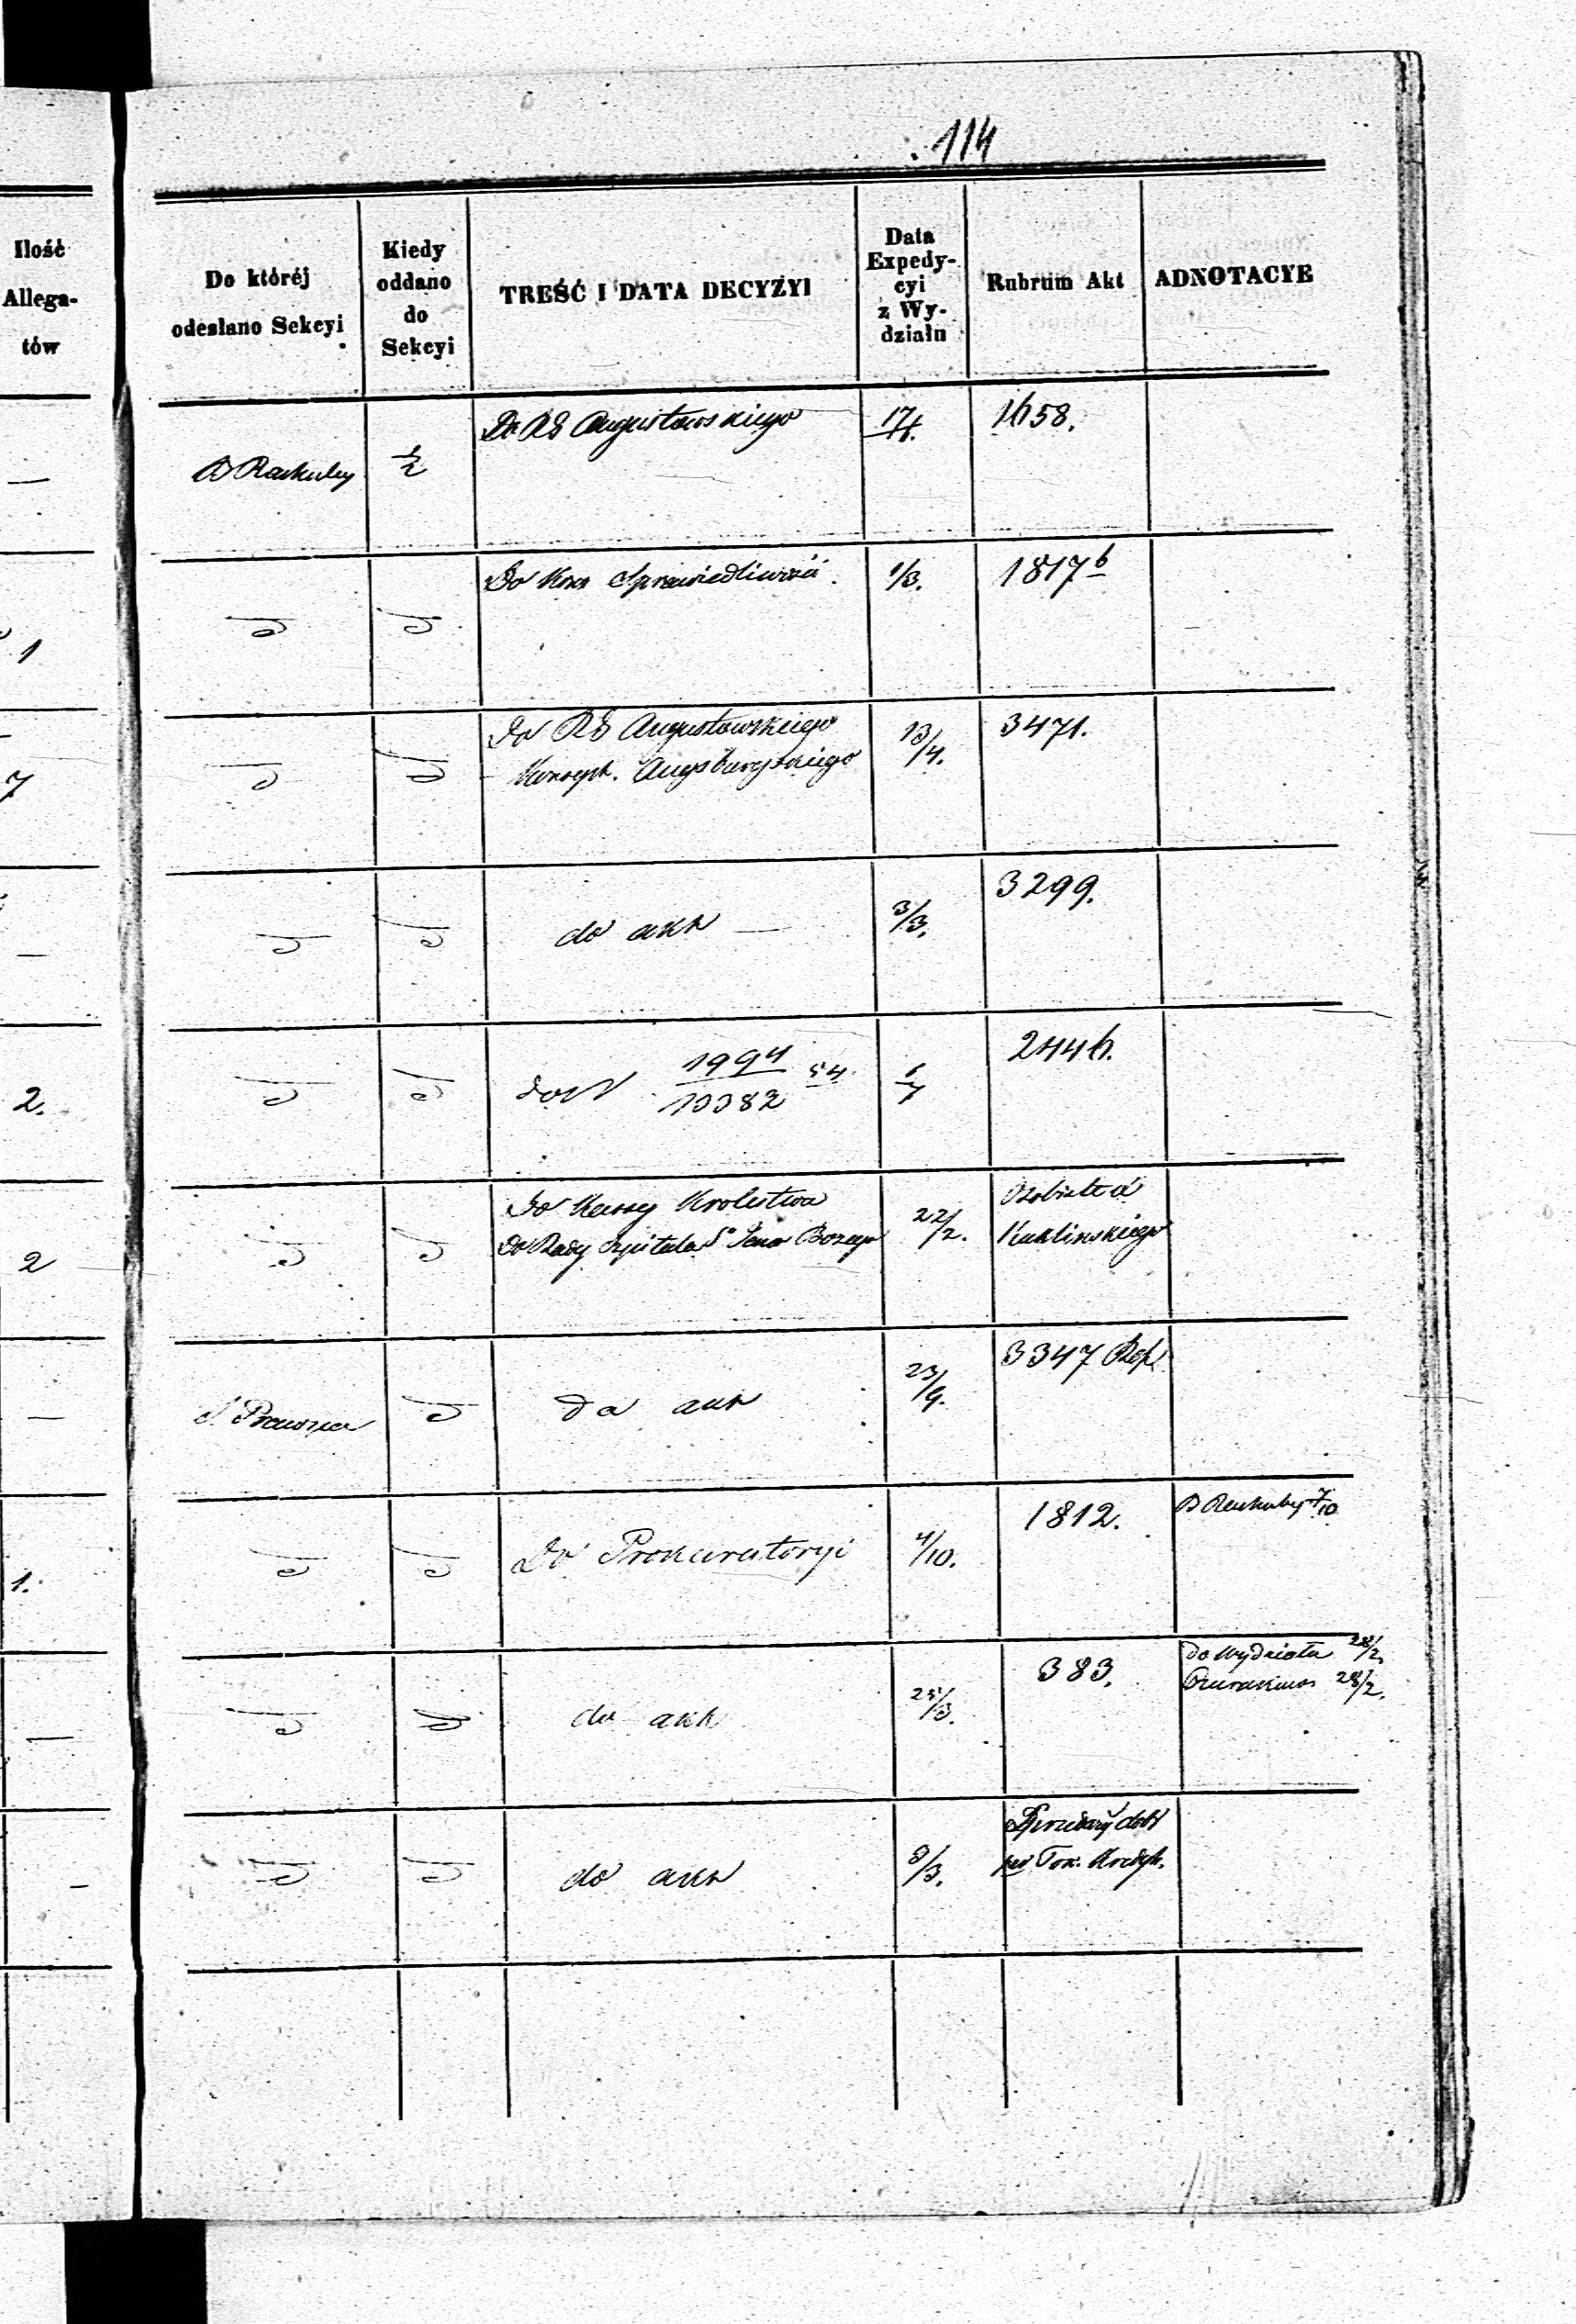 114
Ilość
Allega-
tów
Do któréj
odesłano Sekcyi
Kiedy
oddano
do
Sekcyi
TREŚĆ I DATA DECYZYI
Data
Expedy-
cyi
z Wy-
działu
Rubrum Akt
ADNOTACYE
—
1/2
Augustowskiego
1658.
1
Do Kom Sprawiedliwości.
1/3.
1817 b
7
Do Augustowskiego
Konsyst. Augsburskiego
13/4.
3471.
—
do akt —
3/3.
3299.
2.
do N 1994/13382 54.
2446.
2
Do Kassy Krolestwa
Do Rady Szpitala Sº Jana Bozego
22/2.
Kuklinskiego
—
S. Prawna
do akt
23/9.
3347 Rep.
1.
Do Prokuratoryi
4/10.
1812.
7/10
—
do akt
25/3.
383.
do Wydziału 28/2.
28/2.
-
do akt
3/3.
Sprzedaży dobr
Tow. Kredyt.